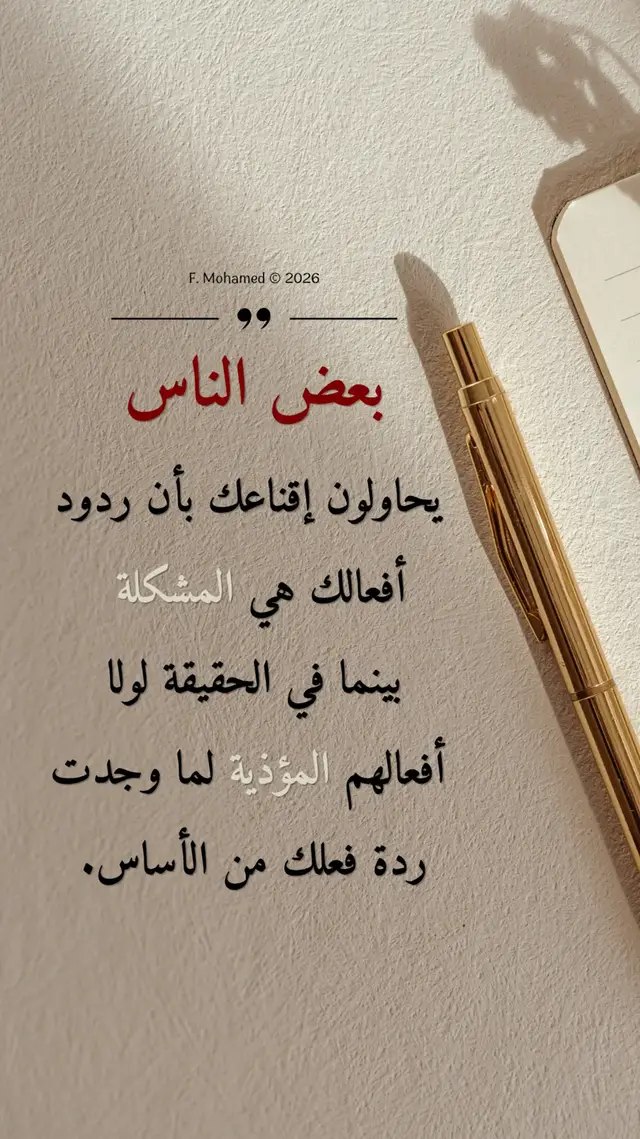 F. Mohamed © 2026
”
بعض الناس
يحاولون إقناعك بأن ردود
أفعالك هي المشكلة
بينما في الحقيقة لولا
أفعالهم المؤذية لما وجدت
ردة فعلك من الأساس.